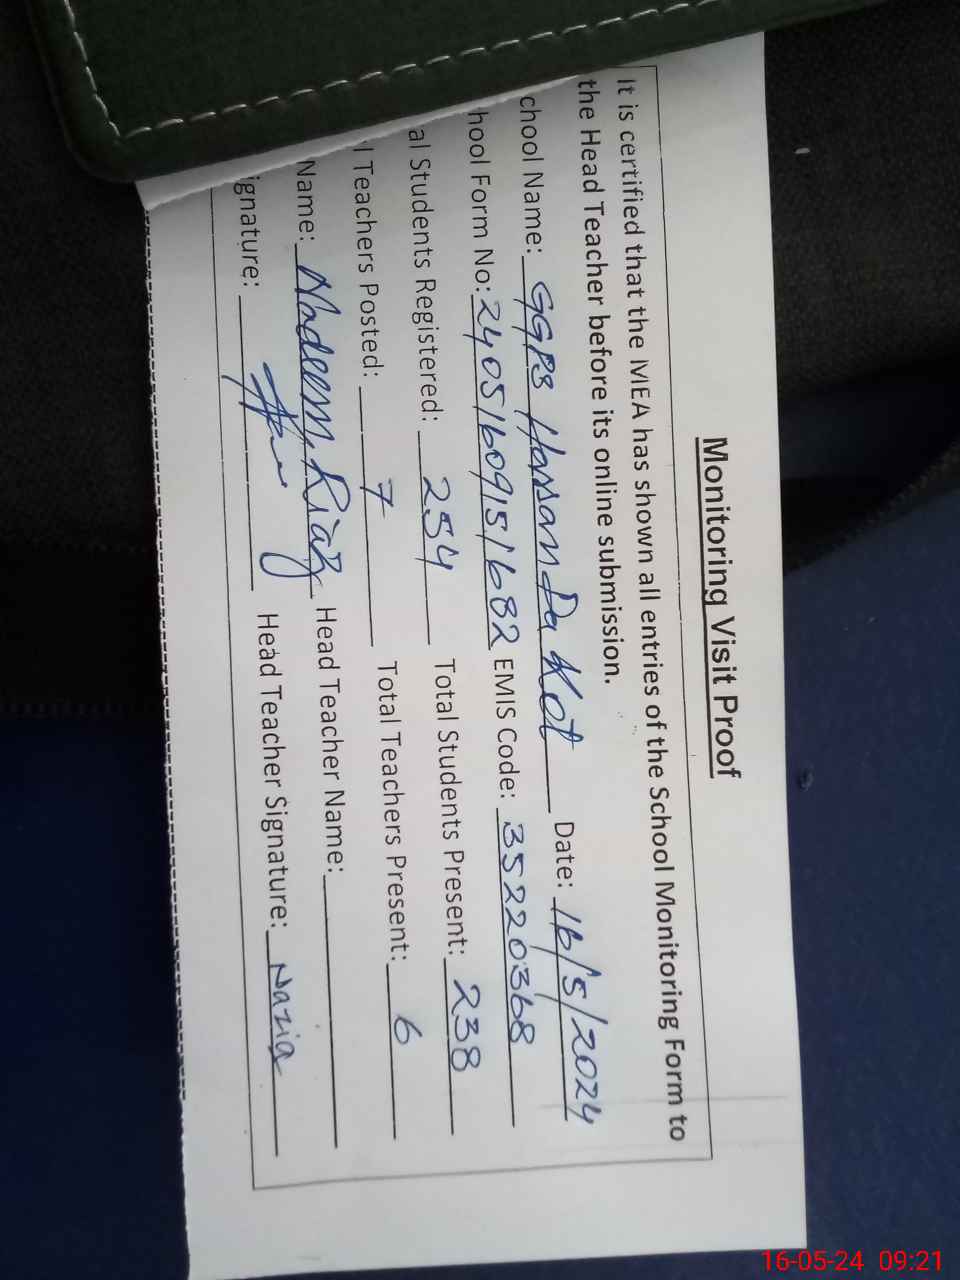 Monitoring Visit Proof
It is certified that the MEA has shown all entries of the School Monitoring Form to
the Head Teacher before its online submission.
chool Name: GGPS Hassan Da Kot Date: 16/5/2024
hool Form No: 24051609151682 EMIS Code: 35220368
al Students Registered: 254 Total Students Present: 238
l Teachers Posted: 7 Total Teachers Present: 6
Name: Nadeem Riaz Head Teacher Name:
ignature: Head Teacher Signature: Nazia
16-05-24 09:21